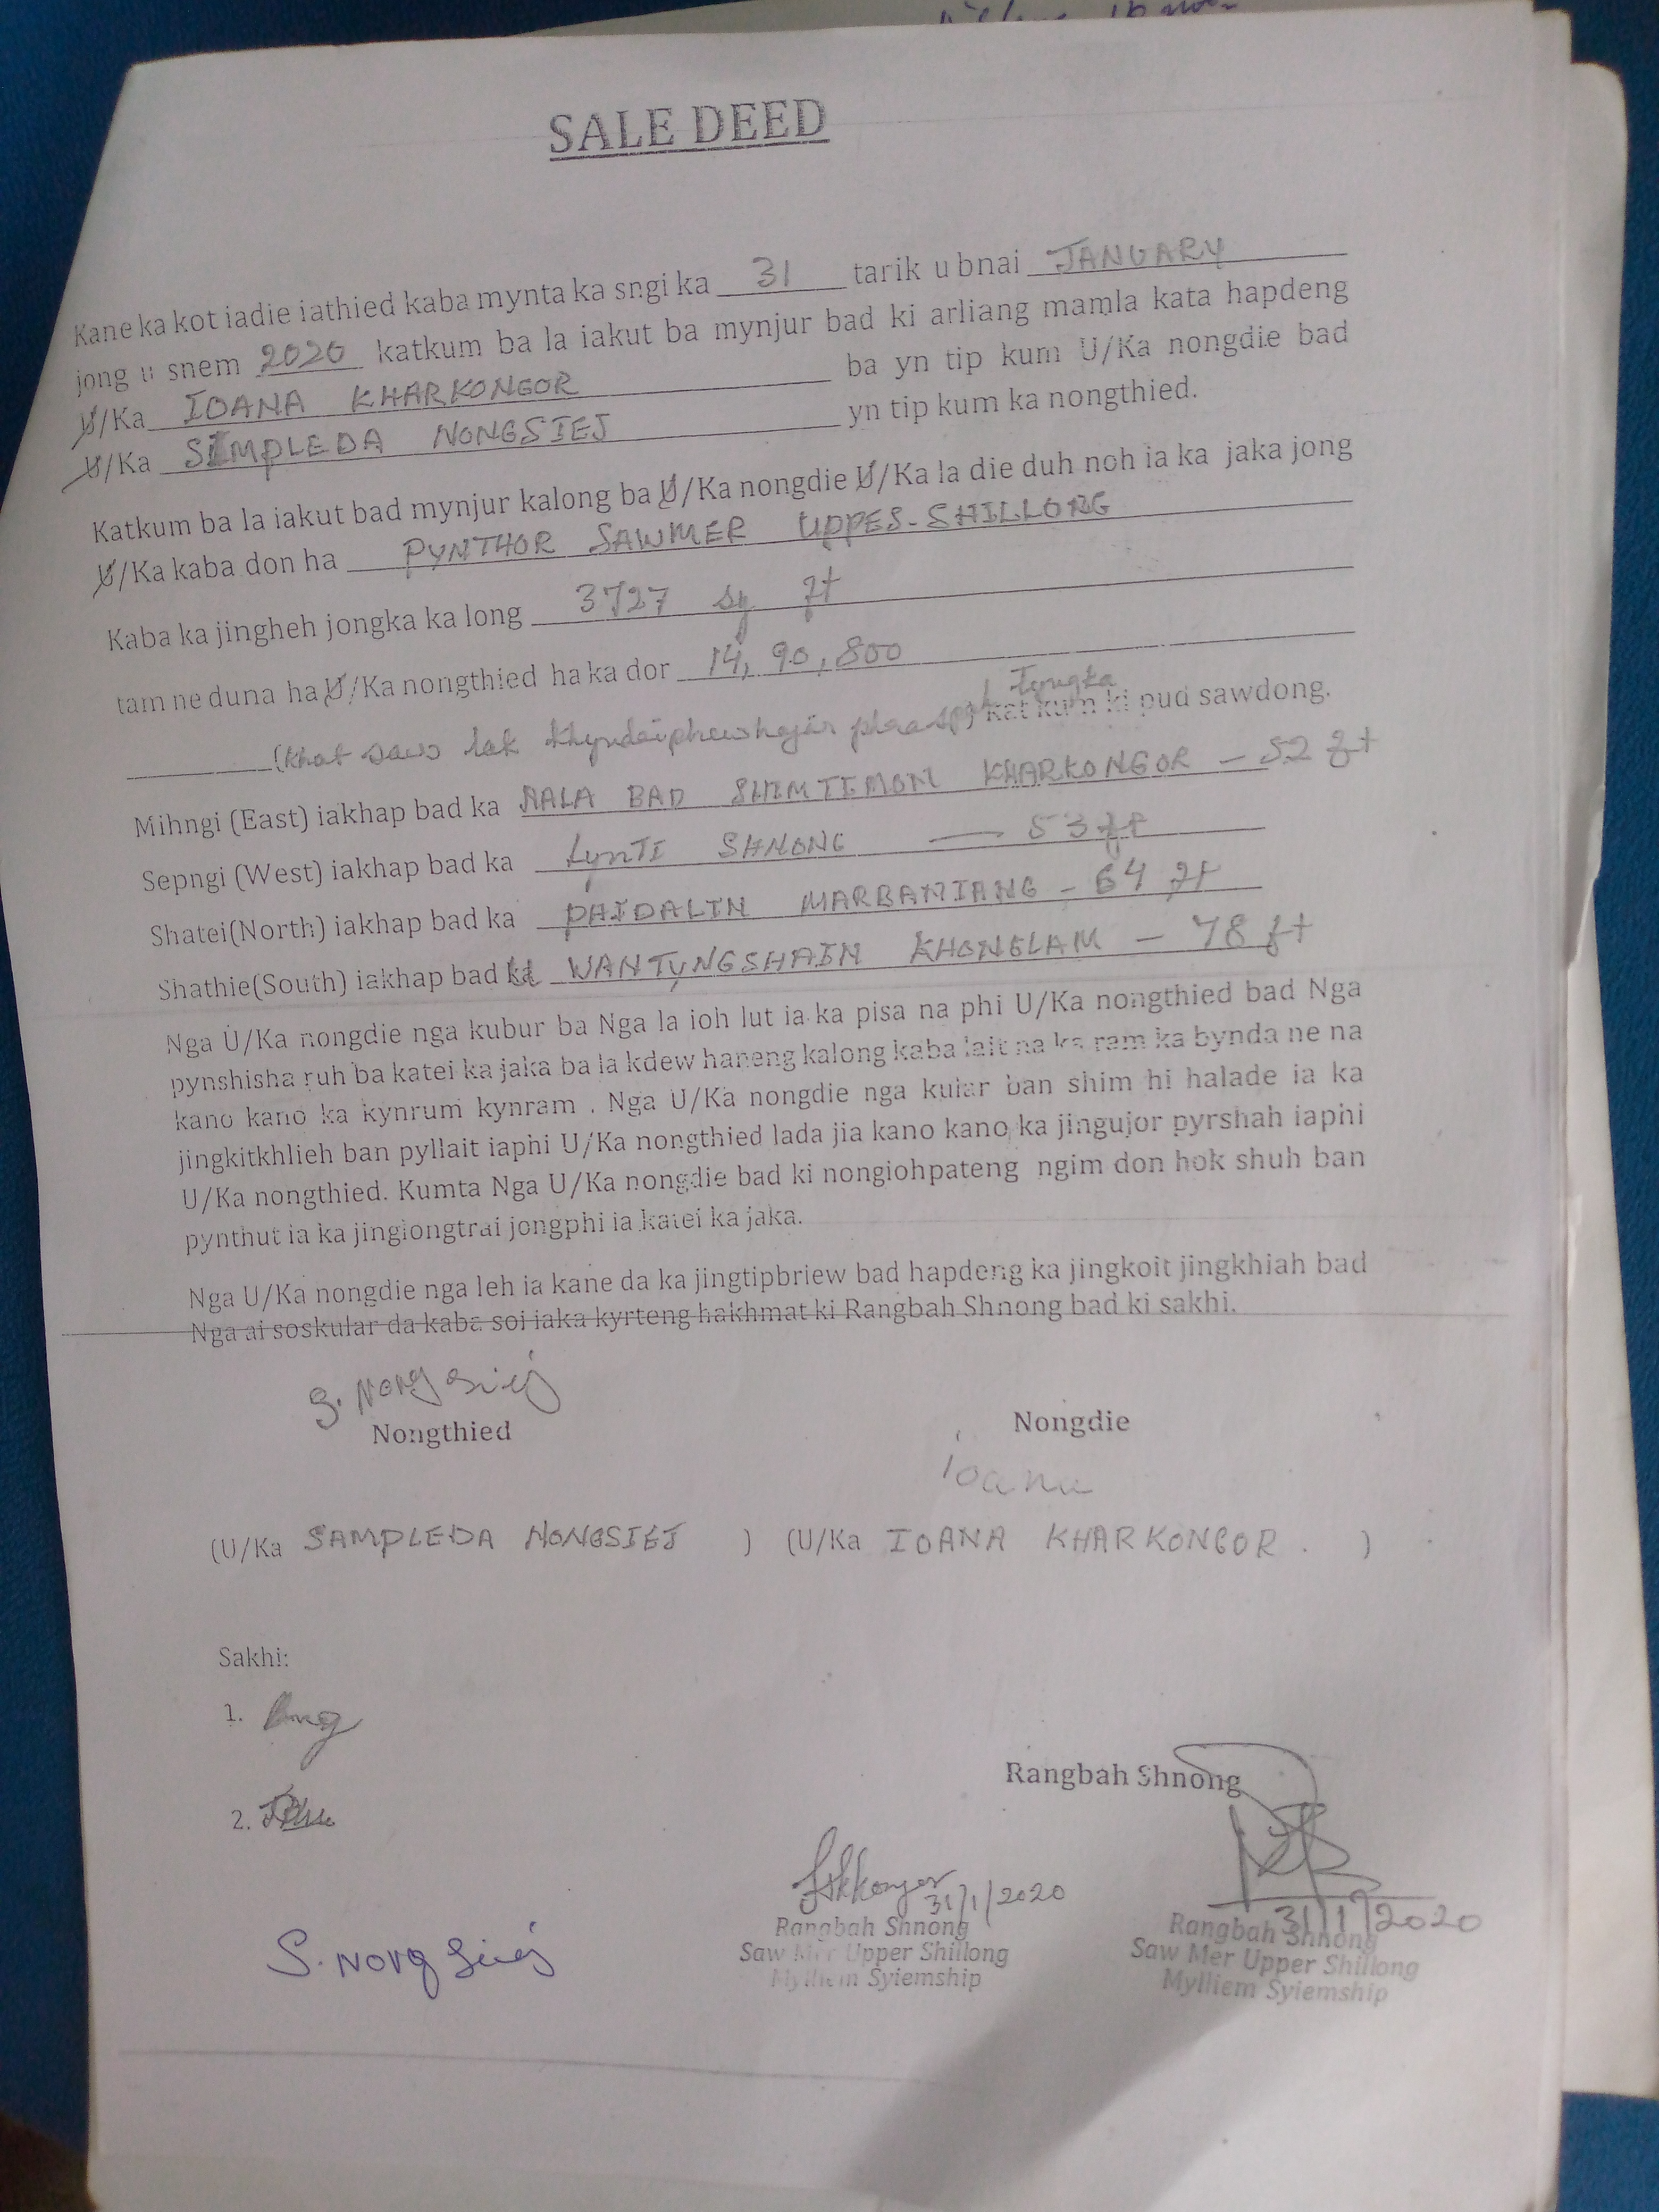 SALE DEED
Kane ka kot iadie iathied kaba mynta ka sngi ka 31 tarik u bnai JANUARY
jong u snem 2020 katkum ba la iakut ba mynjur bad ki arliang mamla kata hapdeng
U/Ka IOANA KHARKONGOR ba yn tip kum U/Ka nongdie bad
U/Ka SIMPLEDA NONGSIEJ yn tip kum ka nongthied.
Katkum ba la iakut bad mynjur kalong ba U/Ka nongdie U/Ka la die duh noh ia ka jaka jong
U/Ka kaba don ha PYNTHOR SAWMER UPPES-SHILLONG
Kaba ka jingheh jongka ka long 3727 sq ft
tam ne duna ha U/Ka nongthied ha ka dor 14,90,800
(Khat saw lak khyndaiphewhajar phraspah Tyngka) kat kum ki pud sawdong.
Mihngi (East) iakhap bad ka BAD KHARKONGOR - 52 ft
Sepngi (West) iakhap bad ka LynTI SHNONG — 53 ft
Shatei(North) iakhap bad ka DAIDALIN MARBANIANG - 64 ft
Shathie(South) iakhap bad ka WANTYNGSHAIN KHONGLAM - 78 ft
Nga U/Ka nongdie nga kubur ba Nga la ioh lut ia ka pisa na phi U/Ka nongthied bad Nga
pynshisha ruh ba katei ka jaka ba la kdew haneng kalong kaba lait na ka ram ka bynda ne na
kano kano ka kynrum kynram . Nga U/Ka nongdie nga kular ban shim hi halade ia ka
jingkitkhlieh ban pyllait iaphi U/Ka nongthied lada jia kano kano ka jingujor pyrshah iaphi
U/Ka nongthied. Kumta Nga U/Ka nongdie bad ki nongiohpateng ngim don hok shuh ban
pynthut ia ka jinglongtrai jongphi ia katei ka jaka.
Nga U/Ka nongdie nga leh ia kane da ka jingtipbriew bad hapdeng ka jingkoit jingkhiah bad
Nga ai soskular da kaba soi iaka kyrteng hakhmat ki Rangbah Shnong bad ki sakhi.
S. Nongsiej
Nongthied Nongdie
ioana
(U/Ka SAMPLEDA NONGSIEJ ) (U/Ka IOANA KHARKONGOR . )
Sakhi:
1.
2.
Rangbah Shnong
31/1/2020 31/1/2020
Rangbah Shnong
Saw Mer Upper Shillong
Mylliem Syiemship
Rangbah Shnong
Saw Mer Upper Shillong
Mylliem Syiemship
S. Nongsiej